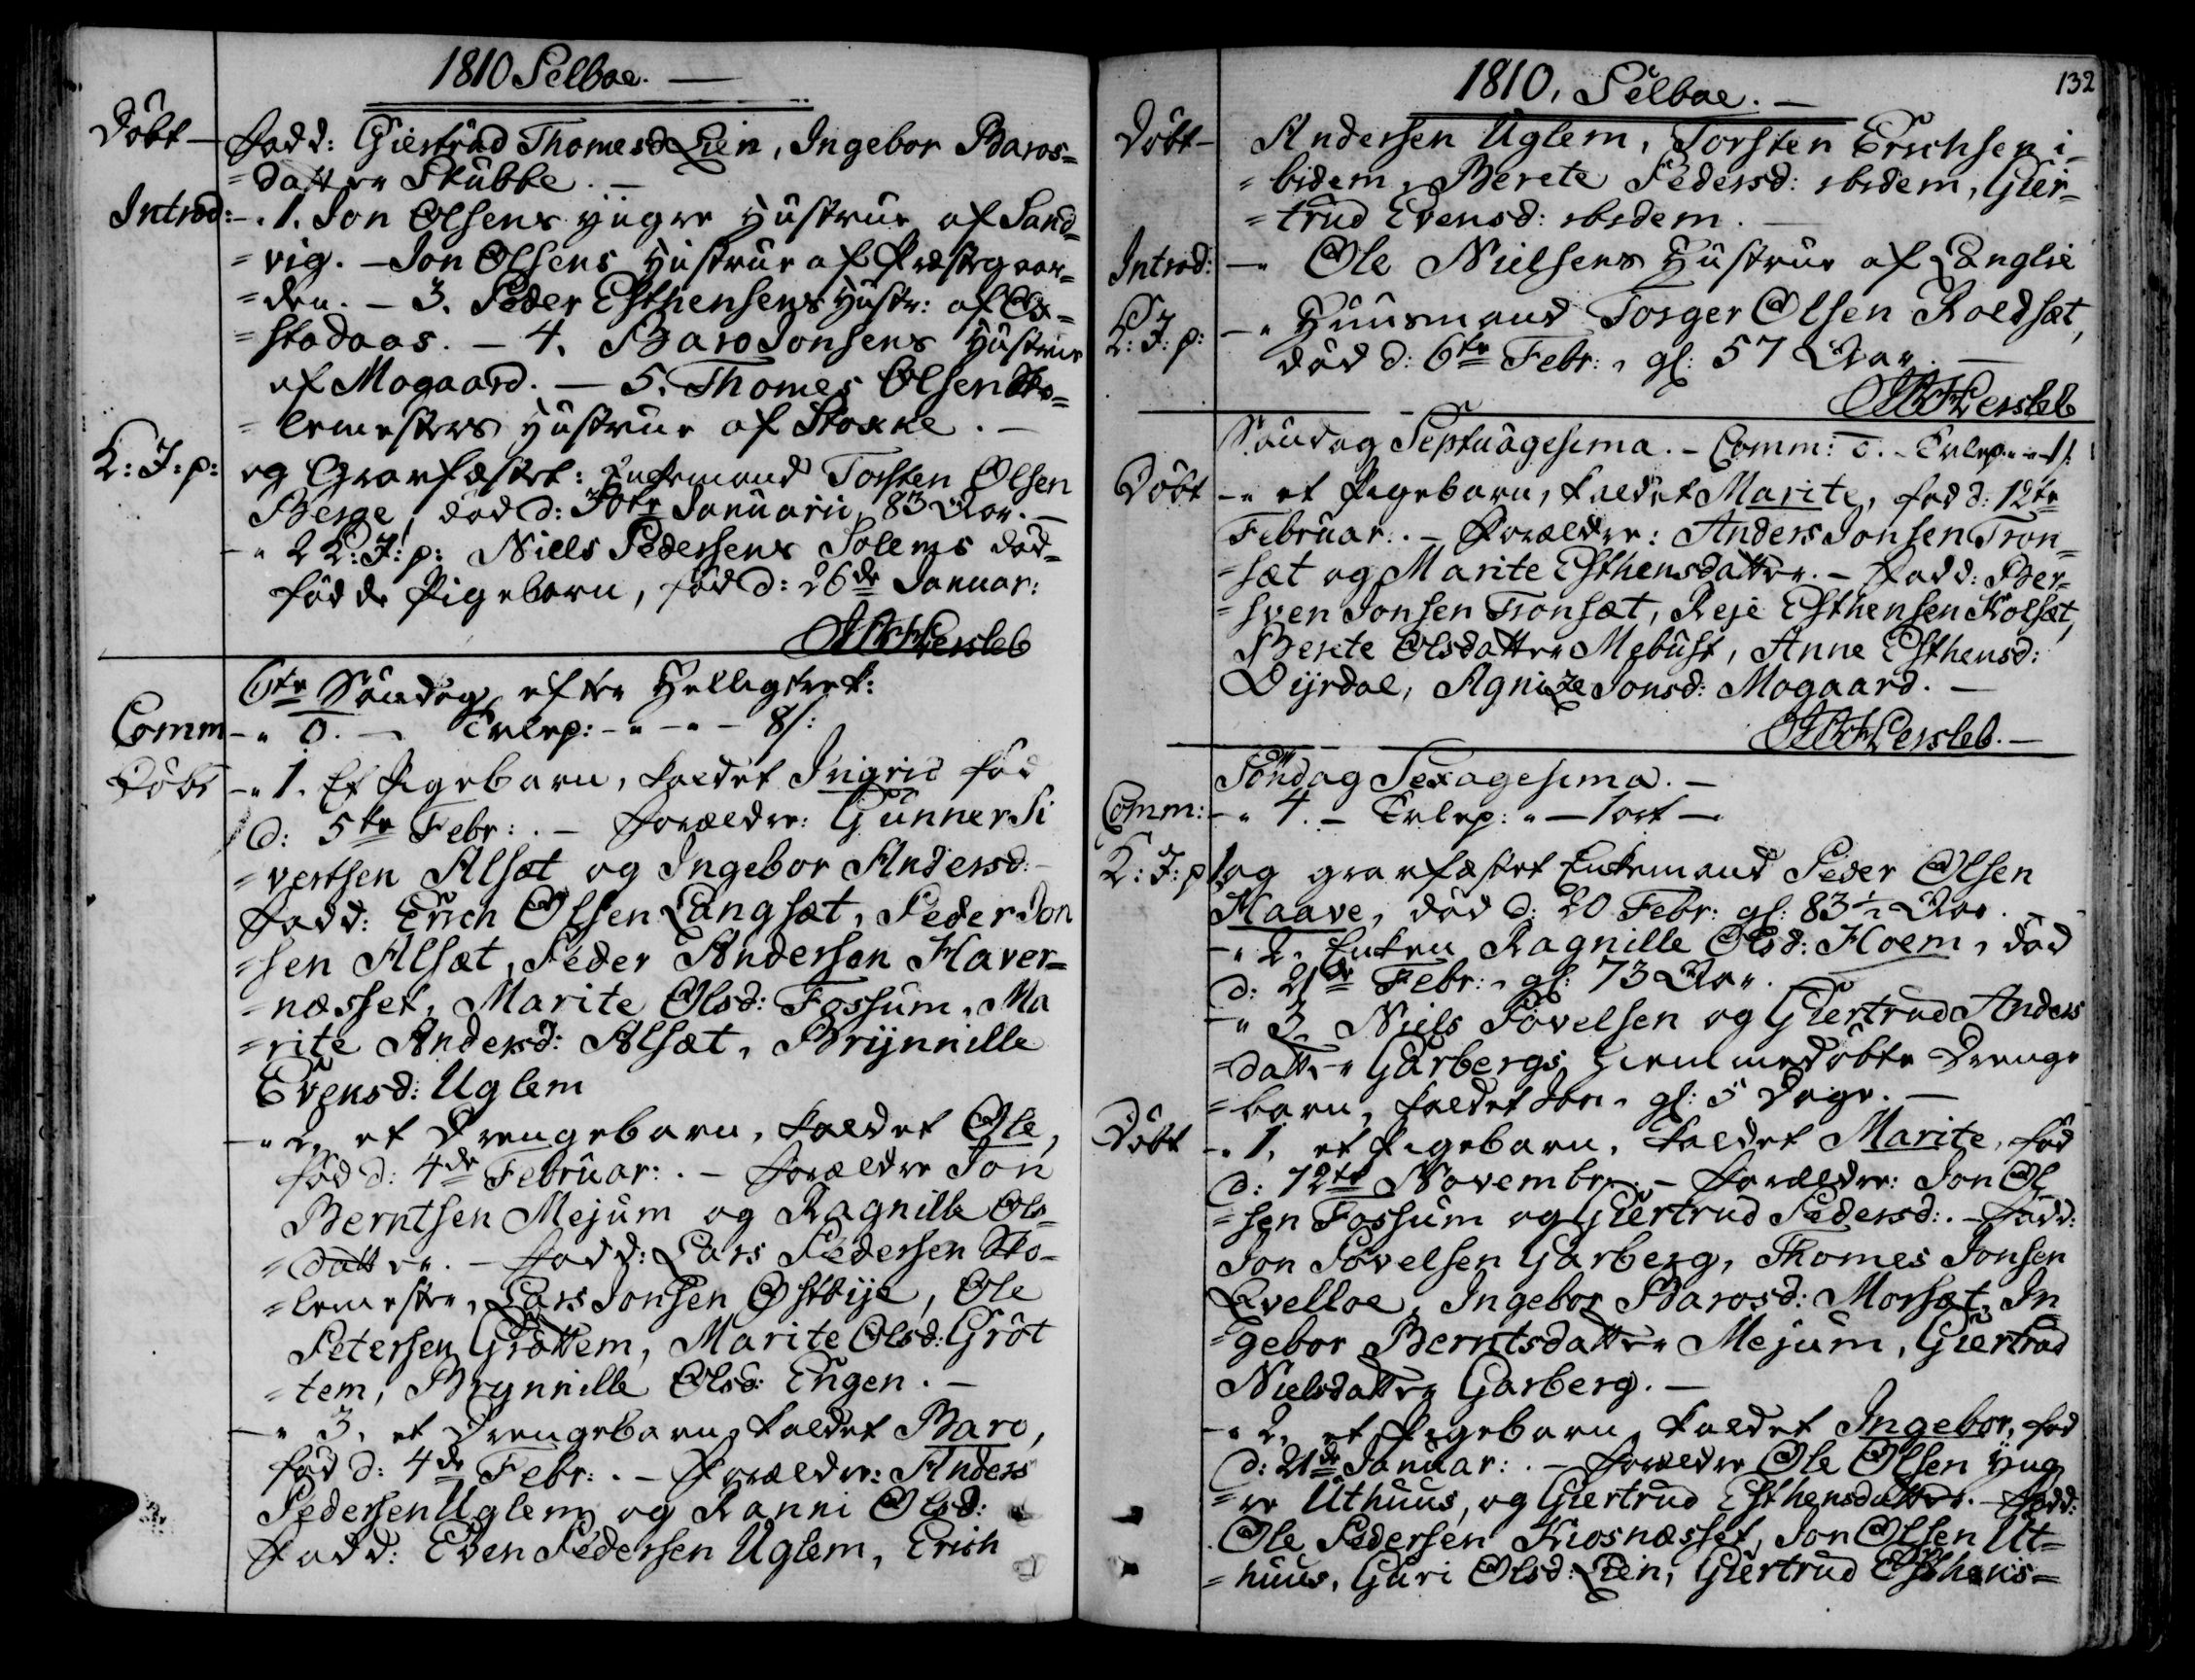 1810 Selboe. —
Döbt — Fadd: Giertrud Thomesd Lien, Ingebor Baros=
=datter Stubbe. —
Introd: — 1. Jon Olsens yngre Hustrue af Sand=
=vig. — Jon Olsens Hustrue af Præstegaar=
=den. — 3. Peder Esthensens Hustr: af
=stadaas. — 4. Baro Jonsens Hustrue
af Mogaard. — 5. Thomes Olsen Sko=
=lemesters Hustrue af Stokke. —
K: J: p: og Gravfæstet: Enkemand Torsten Olsen
Berge, död d: 30te Januarii, 83 Aar. —
— " 2 K: J: p: Niels Pedersens Solems död=
födde Pigebarn, föd d: 26de Januar:
6te Söndag efter Hellig
Comm — " 0. — Tvlep: — " — " — 8 s:
Döbt — " 1. Et Pigebarn, kaldet Ingrid föd
d: 5te Febr: . — Forældre: Gunner Si
=vertsen Alsæt og Ingebor Andersd: —
Fadd: Erich Olsen Langsæt, Peder Jon
=sen Alsæt, Peder Andersen Haver=
=næsset, Marite Olsd: Fossum, Ma
=rite Andersd: Alsæt, Brynnille
Evensd: Uglem
— " 2, et Drengebarn, kaldet Ole,
föd d: 4de Februar: . — Forældre Jon
Berntsen Mejum og Ragnille Ols=
=datter. — Fadd: Lars Pedersen Sko=
=lemester, Lars Jonsen Östbye, Ole
Petersen Gröttem, Marite Olsd: Gröt
=tem, Brynnille Olsd: Engen. —
— " 3, et Drengebarn, kaldet Baro,
föd d: 4de Febr: . — Forældre: Anders
Pedersen Uglem og Ranni Olsd:
Fadd: Even Pedersen Uglem, Erich
1810, Selboe. —
132
Döbt — Andersen Uglem, Torsten Erichsen i=
=bidem, Berete Pedersd: ibidem, Gier=
=trud Evensd: ibidem. —
Introd: — " Ole Nielsens Hustrue af Langlie
K: J: p: — " Huusmand Torger Olsen Roldsæt,
död d: 6te Febr: , gl: 57 Aar. —
Söndag Septuagesima. — Comm: 0. — Tvlep: —
Döbt — " et Pigebarn, kaldet Marite, föd d: 12te
Februar: . — Forældre: Anders Jonsen Tron=
=sæt og Marite Esthensdatter. — Fadd: Ber=
=sven Jonsen Tronsæt, Reje Esthensen Kolsæt,
Berete Olsdatter Mebust, Anne Esthensd:
Dyrdal, Agnize Jonsd: Mogaard. —
Söndag Sexagesima. —
Comm: — " 4. — Tvlep: " — 1 ort —
K: J: p 1 og gravfæstet Enkemand Peder Olsen
Haave, död d: 20 Febr: gl: 83½ Aar. —
— " 2, Enken Ragnille Olsd: Hoem, död
d: 21de Febr: , gl: 73 Aar.
— " 3, Niels Povelsen og Giertrud Anders
=datter Garbergs hiemmedöbte Drenge
=barn, kaldet Jon, gl: 5 Dage. —
Döbt — " 1, et Pigebarn, kaldet Marite, föd
d: 12te November. — Forældre: Jon Ol
=sen Fossum og Giertrud Pedersd: . — Fadd:
Jon Povelsen Garberg, Thomes Jonsen
Evelloe, Ingebor Barosd: Morsæt, In
=gebor Berntsdatter Mejum, Giertrud
Nielsdatter Garberg. —
— " 2, et Pigebarn, kaldet Ingebor, föd
d: 21de Januar: . — Forældre Ole Olsen yng
=re Uthuus, og Giertrud Esthensdatter. — Fadd:
Ole Pedersen Kiosnæsset, Jon Olsen Ut=
=huus, Guri Olsd: Lien, Giertrud Esthens=